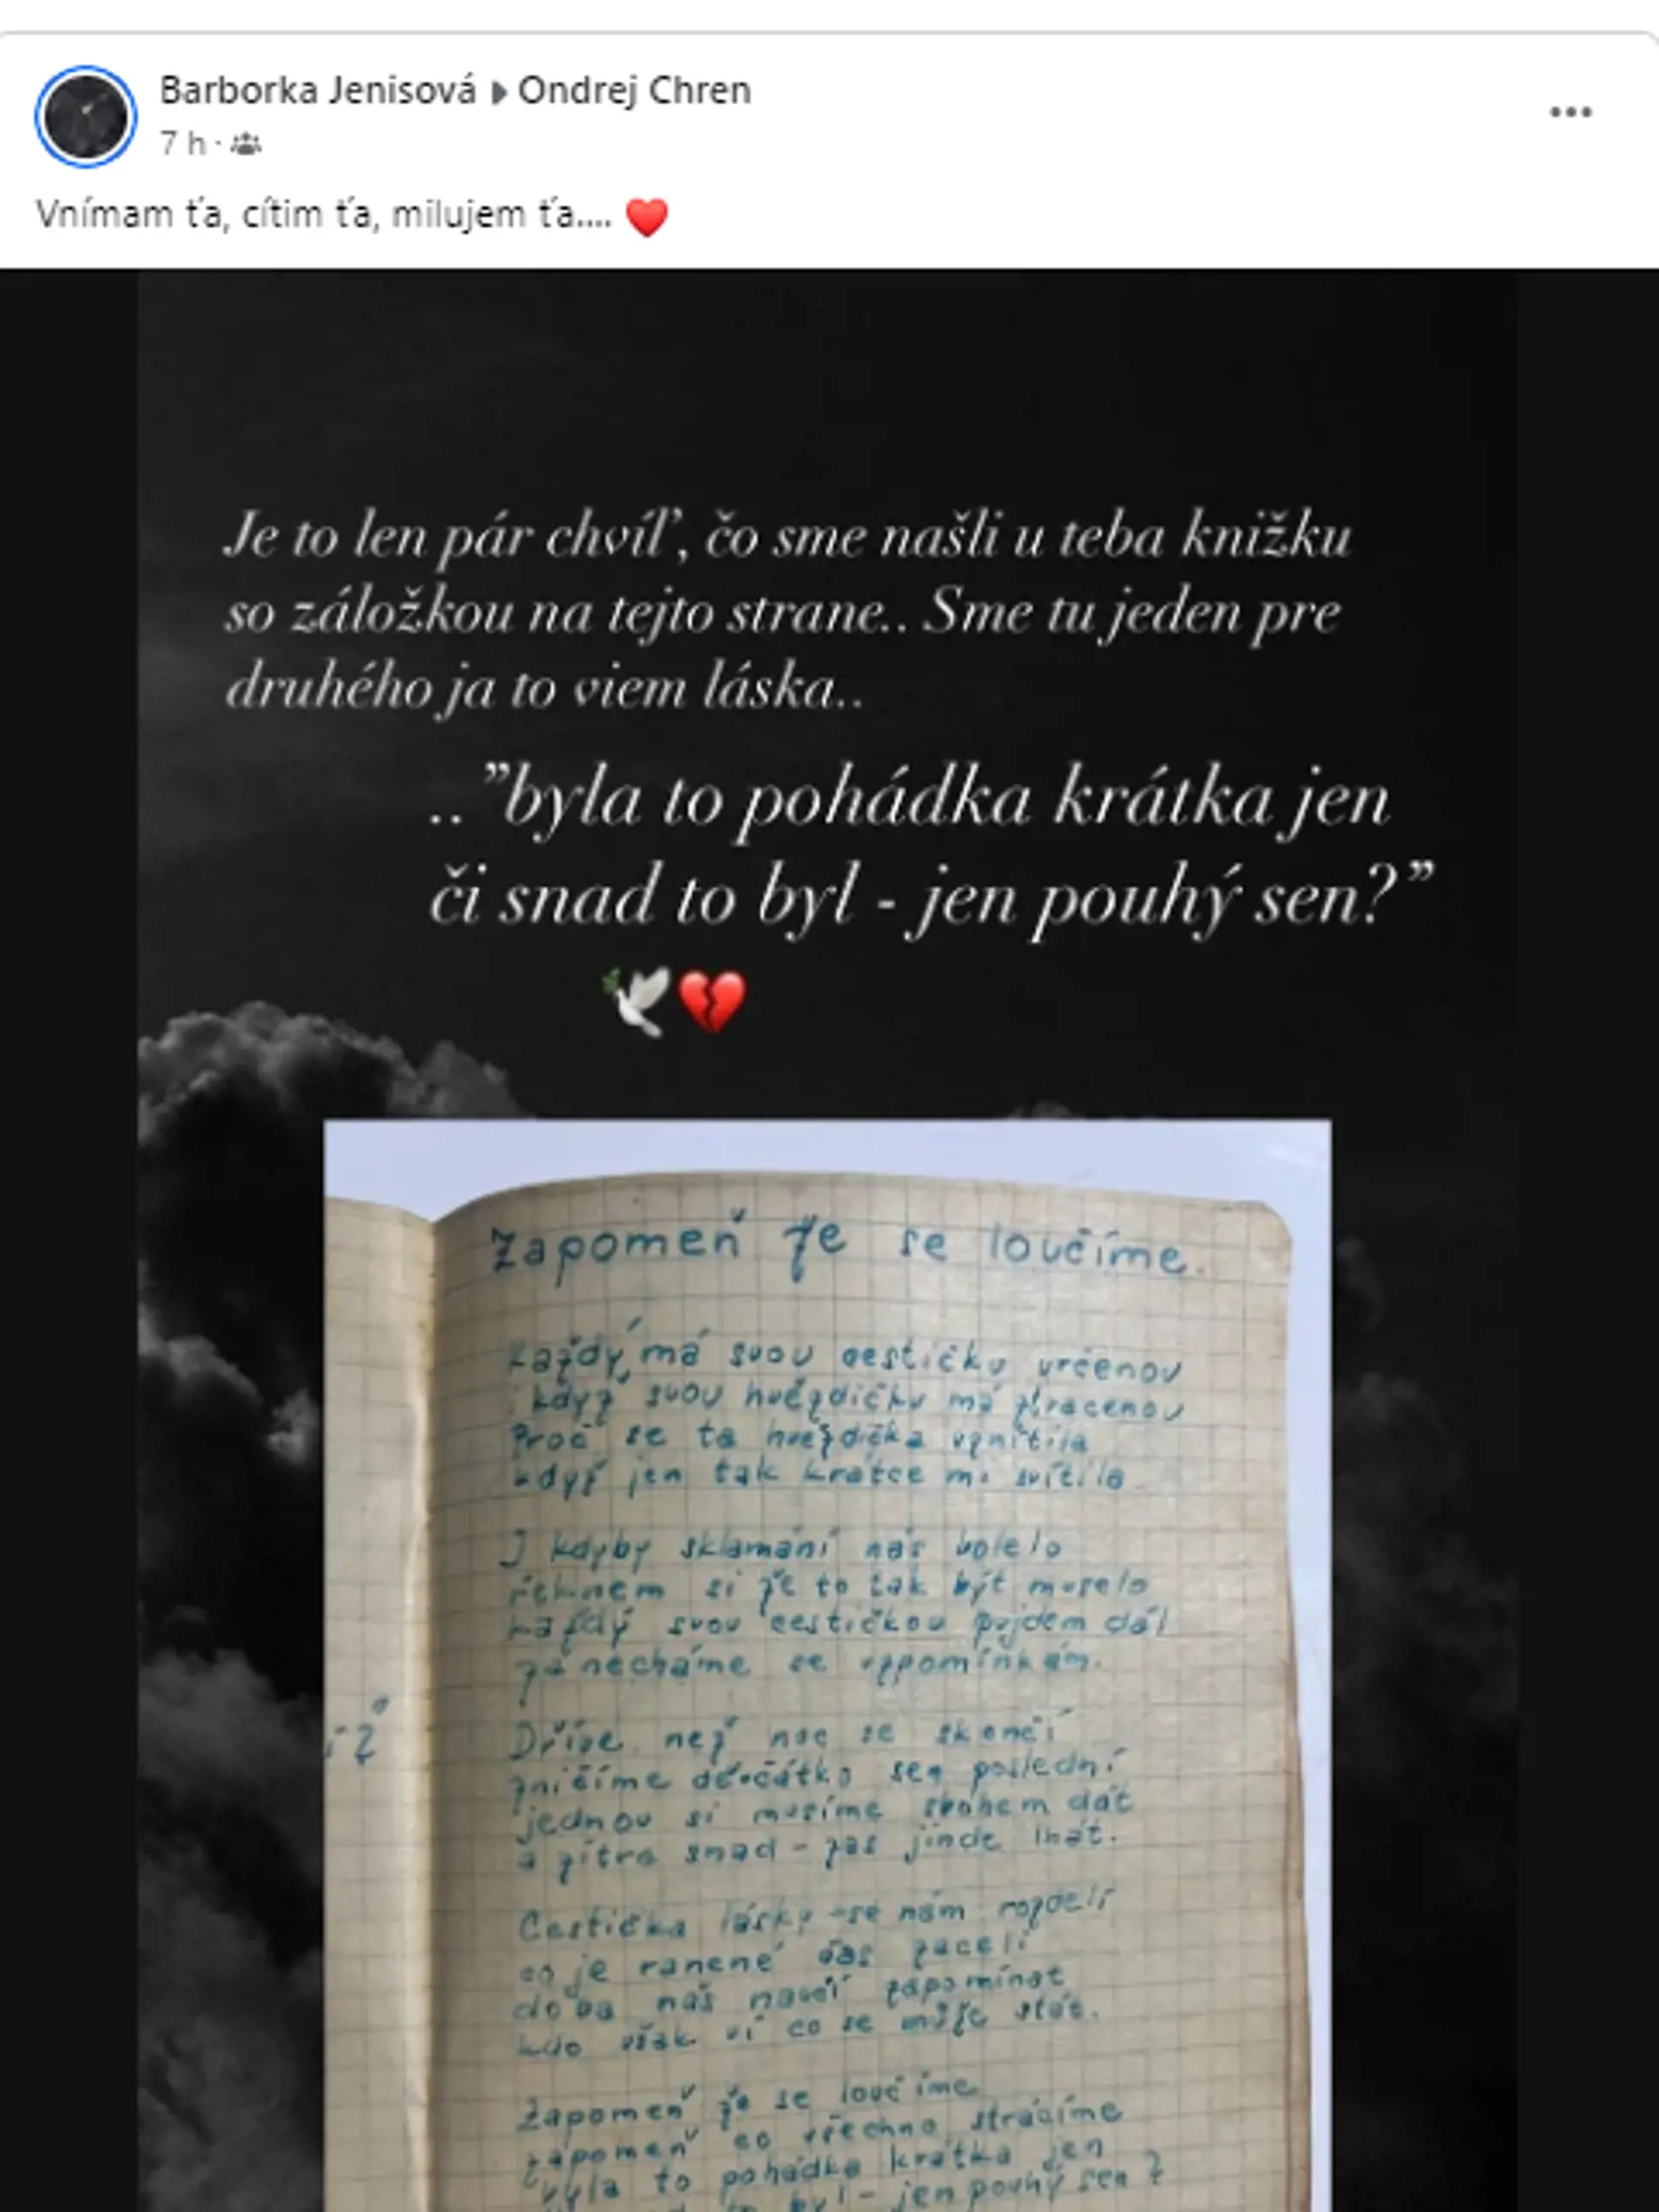 Barborka Jenisová ▸ Ondrej Chren
7 h ·
Vnímam ťa, cítim ťa, milujem ťa.... ❤️
Je to len pár chvíľ, čo sme našli u teba knižku
so záložkou na tejto strane.. Sme tu jeden pre
druhého ja to viem láska..
..”byla to pohádka krátka jen
či snad to byl - jen pouhý sen?”
🕊💔
Zapomeň že se loučíme.
Každý má svou cestičku určenou
i když svou hvězdičku má ztracenou
Proč se ta hvězdička vznítila
když jen tak krátce mi svítila
I kdyby sklamání nás bolelo
řeknem si že to tak být muselo
každý svou cestičkou pujdem dál
zanecháme se vzpomínkám.
Dříve než noc se skončí
zničíme děvčátko sen poslední
jednou si musíme sbohem dát
a zítra snad - zas jinde lhát.
Cestička lásky se nám rozdelí
co je ranené čas zacelí
doba náš naučí zapomínat
kdo však ví co se může stát.
Zapomeň že se loučíme
zapomeň co všechno strácíme
byla to pohádka krátka jen
to byl - jen pouhý sen?